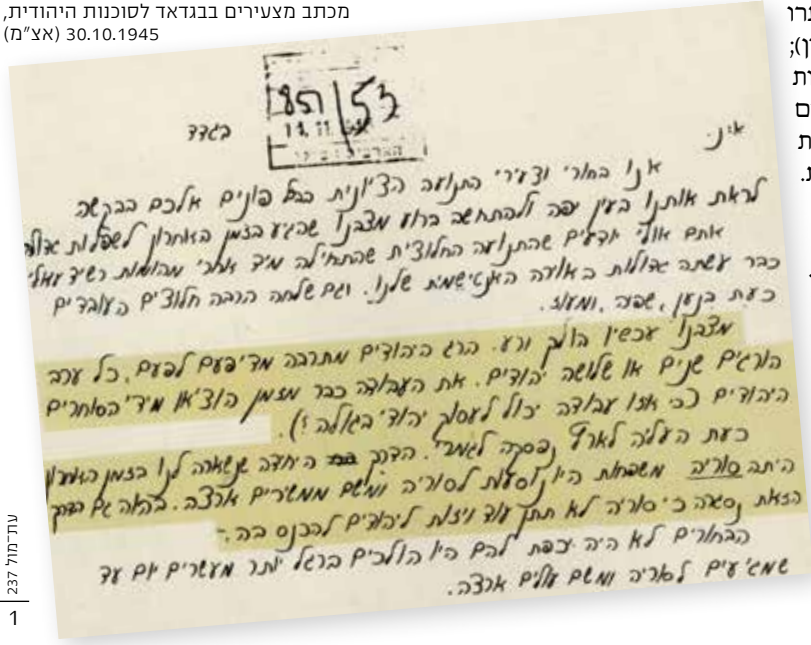 מכתב מצעירים בבגדאד לסוכנות היהודית,
30.10.1945 (אצ"מ)
רו
ן);
ית
ים
ת
ת.
851/53
14.11
בגדד
א״נ.
אנו בחורי וצעירי התנועה הציונית בבל פונים אלכם בבקשה
לראת אותנו בעין יפה ולהתחשב ברוע מצבנו שהגיע בזמן האחרון לשפלות גדולה
אתם אולי יודעים שהתנועה החלוצית שהתחילה מיד אחרי מהומות רשיד עאלי
כבר עשתה גדולות באוירה האנטישמית שלנו. וגם שלחה הרבה חלוצים העובדים
כעת בנען, שפיה, ומעוז.
מצבנו עכשיו הולך ורע. הרג היהודים מתרבה מדי פעם לפעם. כל ערב
הורגים שנים או שלושה יהודים. את העבודה כבר מזמן הוציאו מידי הסוחרים
היהודים (כי איזו עבודה יכול לעסוק יהודי בגולה?).
כעת העליה לארץ נפסקה לגמרי. הדרך היחדה שנשארה לנו בזמן האחרון
היתה סוריה משפחות היו נוסעות לסוריה ומשם ממשירים ארצה. גם הדרך
הזאת נסגרה כי סוריה לא תתן עוד ויזות ליהודים להכנס בה.-
הבחורים לא היה יכפת להם היו הולכים ברגל יותר מעשרים יום עד
שמגיעים לסוריה ומשם עולים ארצה.
עת־מול 237
1